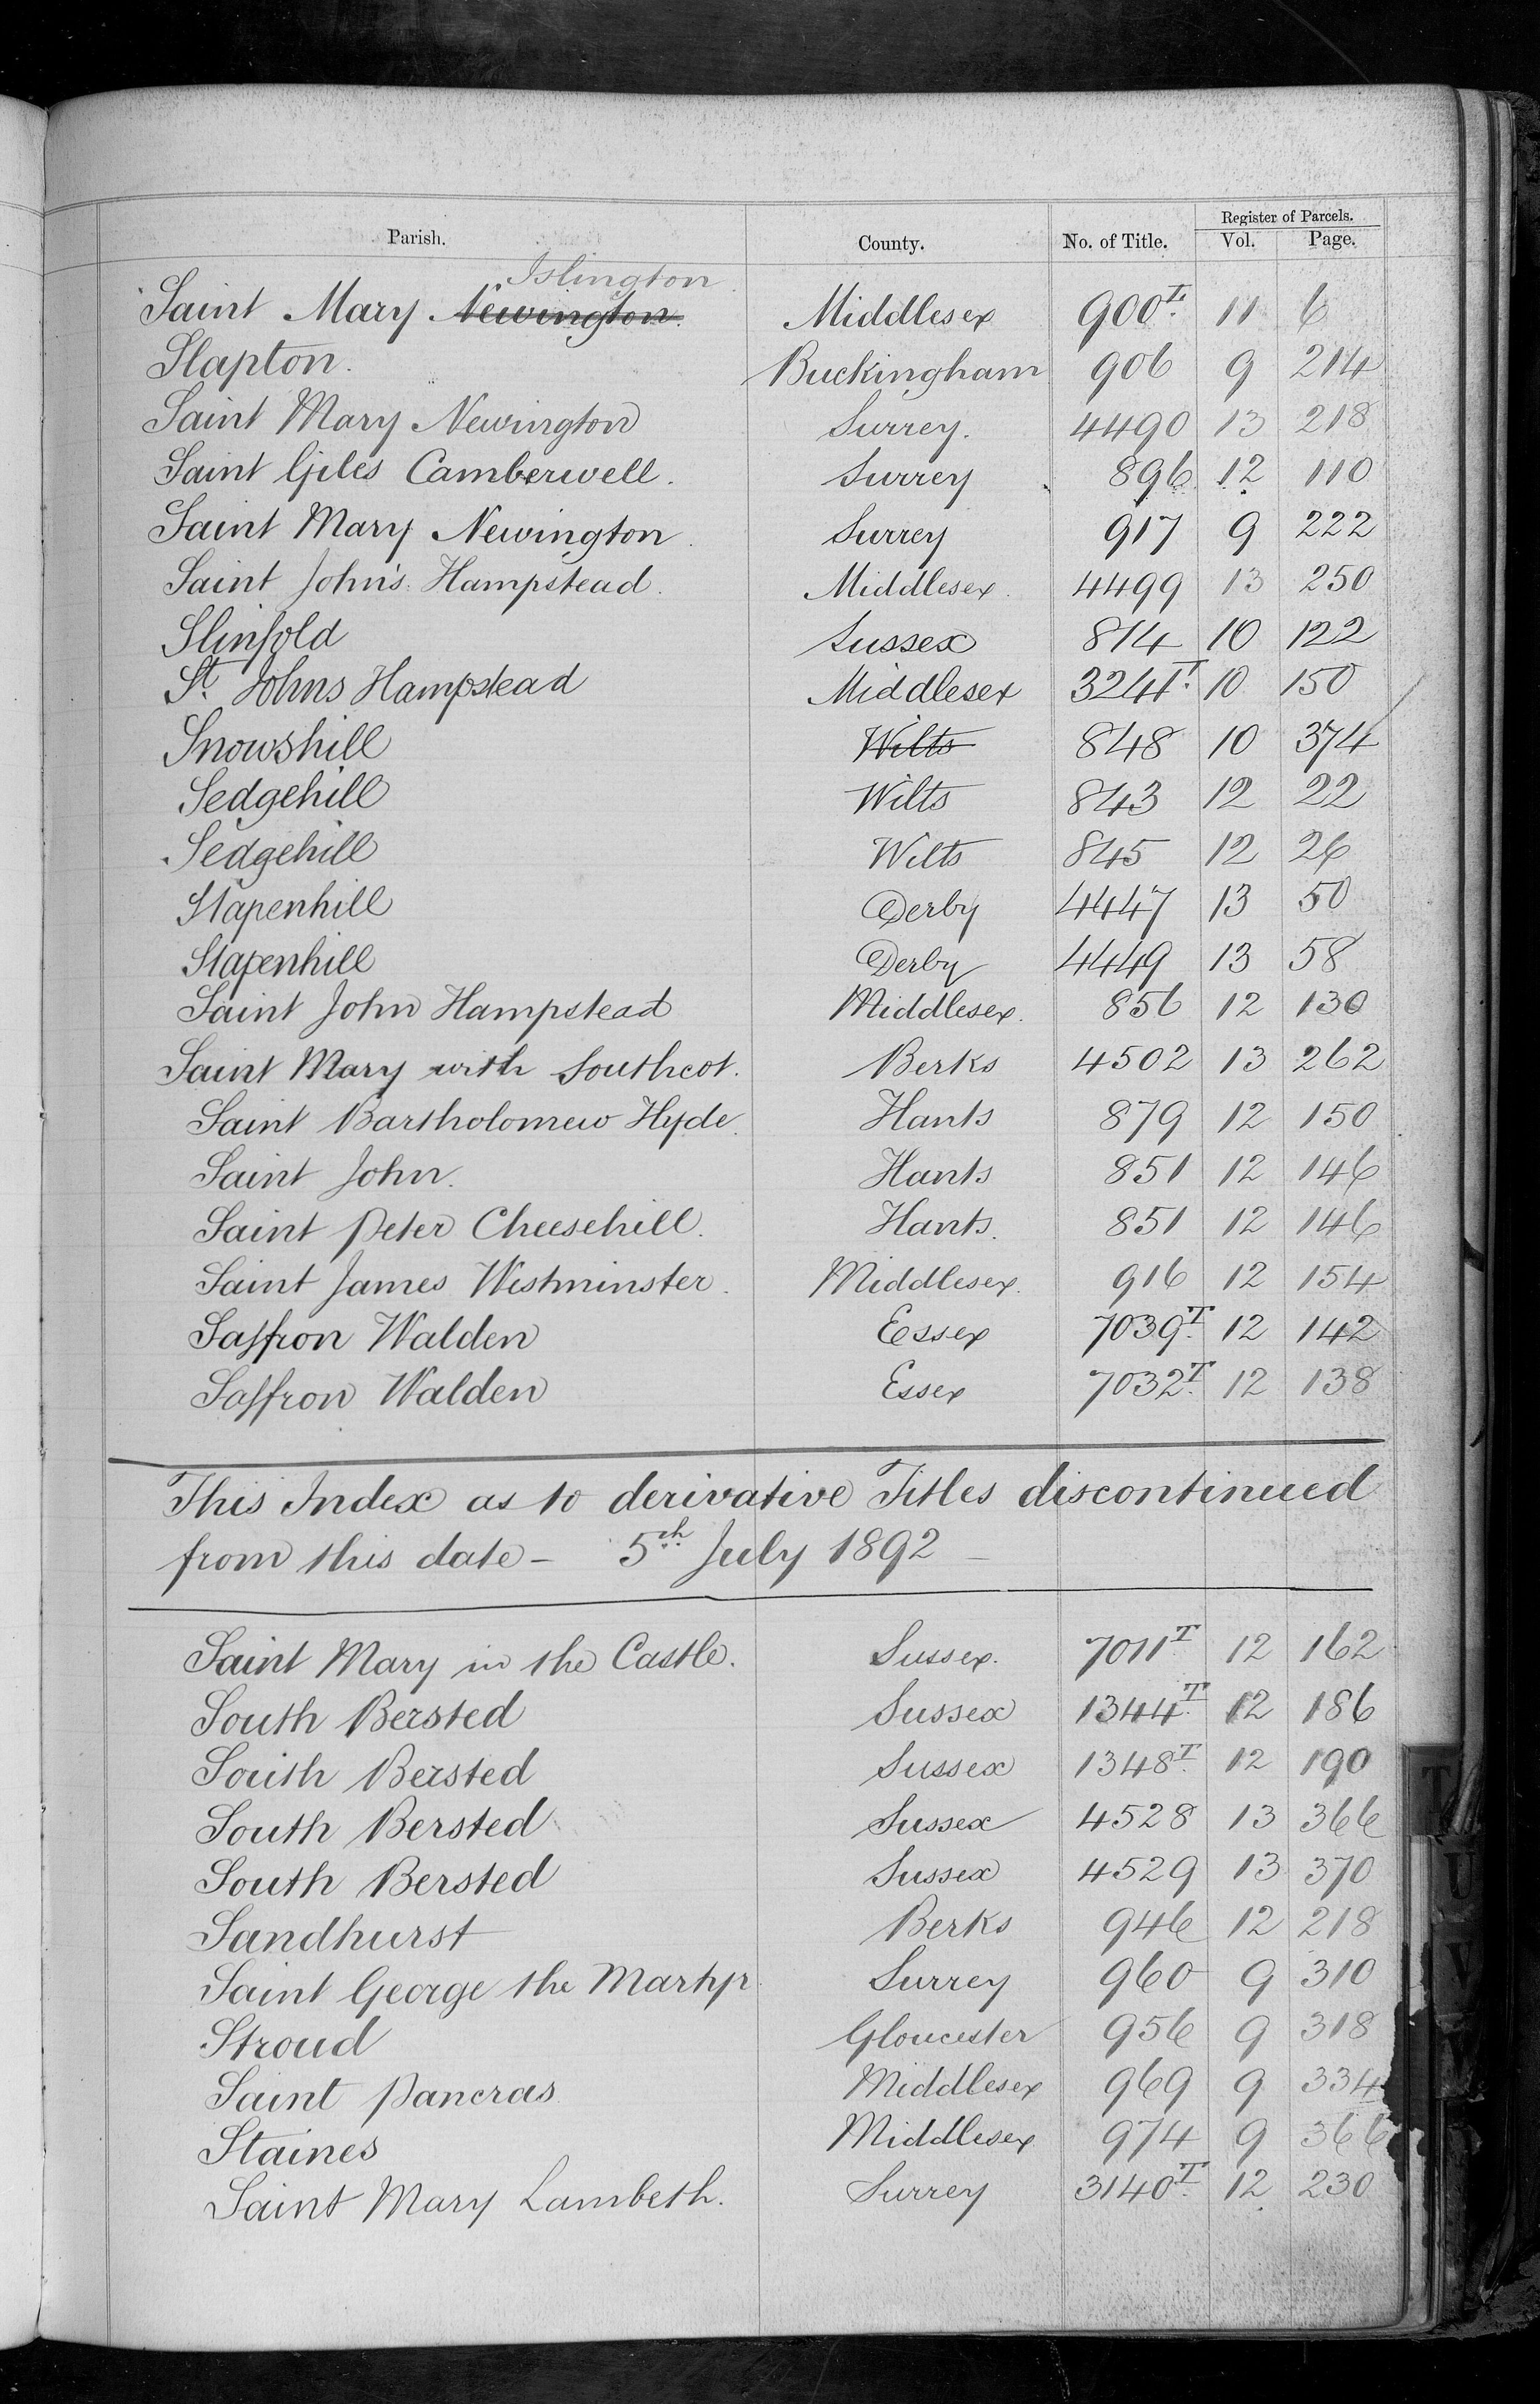 Register of Parcels.
Parish. County. No. of Title. Vol. Page.
Islington
Saint Mary Newington. Middlesex 900T. 11 6
Slapton. Buckingham 906 9 214
Saint Mary Newington Surrey. 4490 13 218
Saint Giles Camberwell. Surrey 896 12 110
Saint Mary Newington. Surrey 917 9 222
Saint John's Hampstead. Middlesex. 4499 13 250
Slinfold Sussex 814 10 122
St. Johns Hampstead Middlesex 3241T. 10 150
Snowshill Wilts 848 10 374
Sedgehill Wilts 843 12 22
Sedgehill Wilts 845 12 26
Stapenhill Derby 4447 13 50
Stapenhill Derby 4449 13 58
Saint John Hampstead Middlesex. 856 12 130
Saint Mary with Southcot. Berks 4502 13 262
Saint Bartholomew Hyde. Hants 879 12 150
Saint John. Hants 851 12 146
Saint Peter Cheesehill. Hants. 851 12 146
Saint James Westminster. Middlesex. 916 12 154
Saffron Walden Essex 7039T. 12 142
Saffron Walden Essex 7032T. 12 138
This Index as to derivative Titles discontinued
from this date – 5th July 1892 –
Saint Mary in the Castle. Sussex. 7011T 12 162
South Bersted Sussex 1344T. 12 186
South Bersted Sussex 1348T. 12 190
South Bersted Sussex 4528 13 366
South Bersted Sussex 4529 13 370
Sandhurst Berks 946 12 218
Saint George the Martyr Surrey 960 9 310
Stroud Gloucester 956 9 318
Saint Pancras Middlesex 969 9 334
Staines Middlesex 974 9 366
Saint Mary Lambeth. Surrey 3140T. 12 230
T
U
V
W